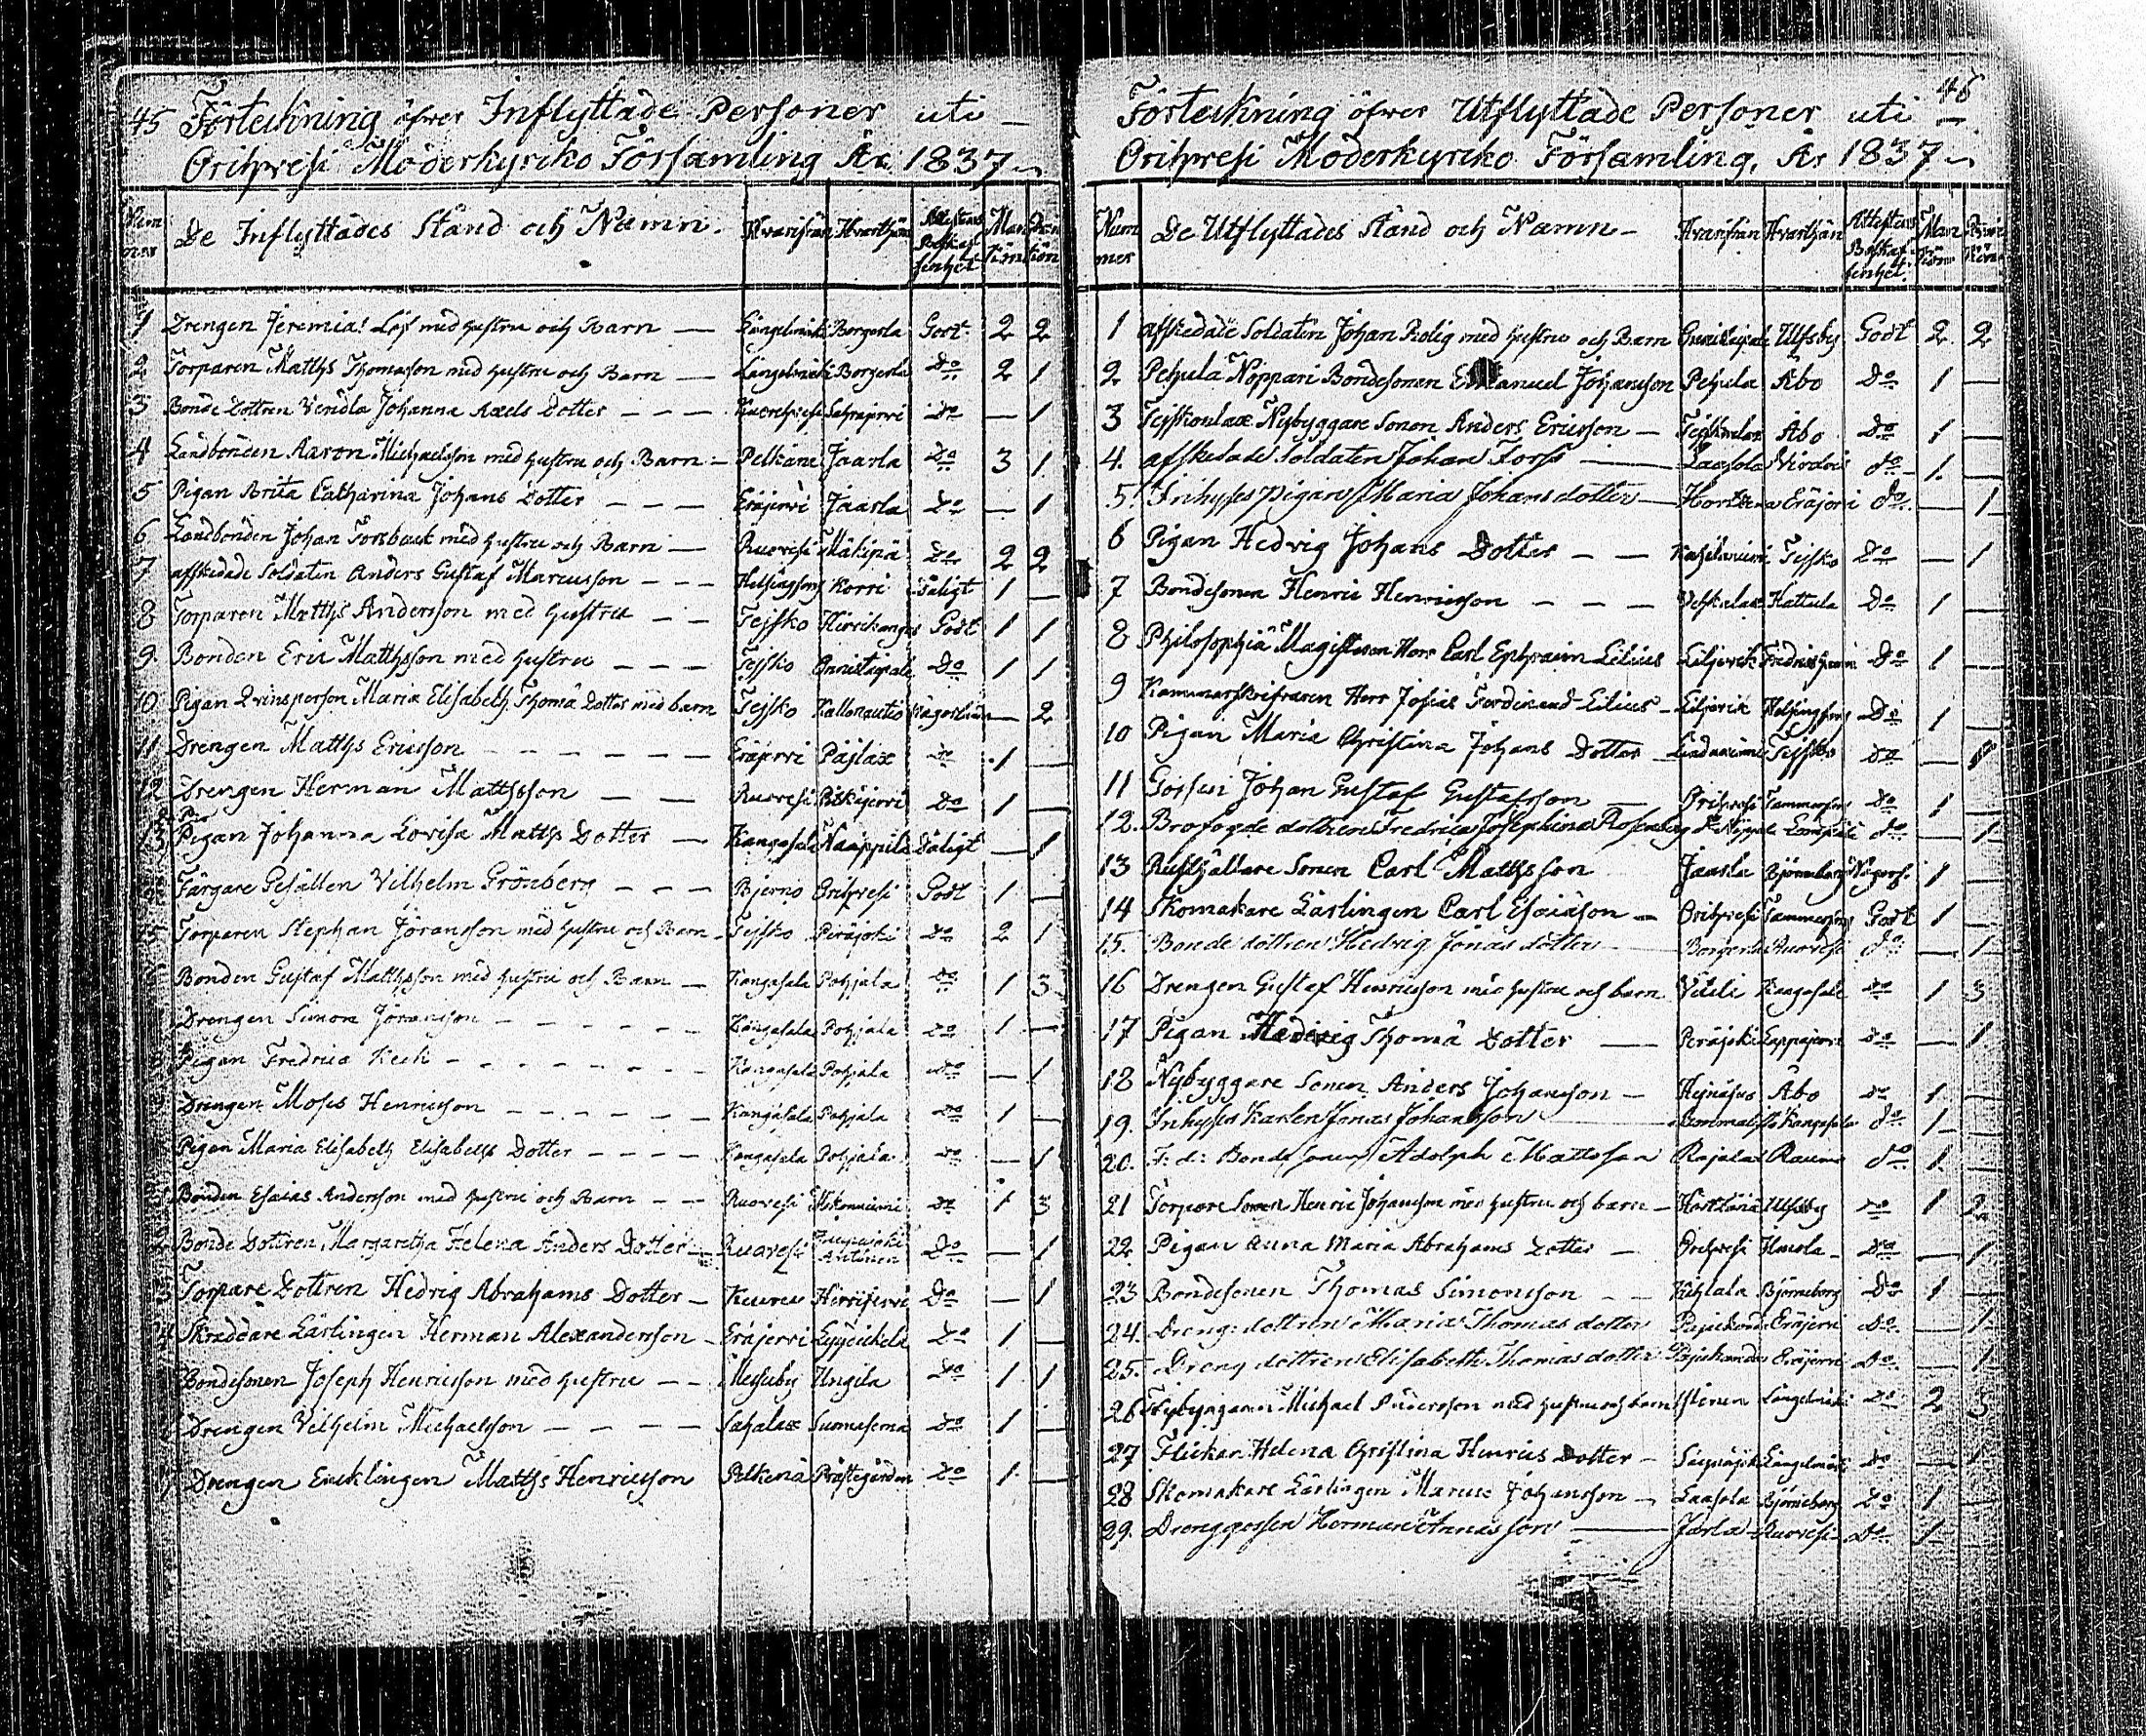 45 Förteckning öfver Inflyttade Personer uti
Orihvesi Moderkyrko Församling År 1837
Num mer De Inflyttades Stånd och Namn. Hvarifrån Hvarthän Attestens Beskaffenhet Man kön Qvin kön
1 Drengen Jeremias Löf med hustru och Barn — Längelmäki Borgerla Godt 2 2
2 Torparen Matths Thomasson med hustru och Barn — Längelmäki Borgerla Do 2 1
3 Bonde Dottren Vendla Johanna Axels Dotter — — — Sahrajervi Do — 1
4 Landbonden Aaron Michaelsson med hustru och Barn — Pelkäne Jaarla Do 3 1
5 Pigan Brita Catharina Johans Dotter — — — Eräjervi Jaarla Do — 1
6 Landbonden Johan Forsback med hustru och Barn — Ruovesi Mäkipä Do 2 2
7 afskedade Soldaten Anders Gustaf Marcusson — — — Helsingfors Korri Dåligt 1 —
8 Torparen Matths Andersson med hustru — — Tejsko Hirrikangas Godt 1 1
9. Bonden Eric Matthsson med hustru — — — Tejsko Do 1 1
10 Pigan Qvinsperson Maria Elisabeth Thomæ Dotter med barn Tejsko Kallonautio — 2
11 Drengen Matths Ericsson — — — — — — Eräjervi Päjlax do 1 —
12 Drengen Herman Matthsson — — Ruovesi Pitkäjervi Do 1 —
13 Pigan Johanna Lovisa Matths Dotter — Kangasala Naappila Dåligt — 1
Färgare Gesällen Vilhelm Grönberg — — — Bjerno Orihvesi Godt 1 —
Torparen Stephan Jöransson med hustru och Barn — Tejsko Peräjoki Do 2 1
Bonden Gustaf Matthsson med hustru och Barn — Kangasala Pohjala do 1 3
Drengen Simon Jöransson — — — — — — Kangasala Pohjala do 1 —
Pigan Fredrica Keck — — — — — — — Kangasala Pohjala do — 1
Drengen Moses Henricsson — — — — — — Kangasala Pohjala do 1 —
Pigan Maria Elisabeth Elisabeths Dotter — — — — Kangasala Pohjala do — 1
Bonden Esaias Andersson med hustru och Barn — — Ruovesi do 1 3
Bonde Dottren Margaretha Helena Anders Dotter — Ruovesi Do — 1
Torpare Dottren Hedvig Abrahams Dotter — Kuru Hirvijervi Do — 1
Skräddare Lärlingen Herman Alexandersson — Eräjervi Do 1 —
Bondesonen Joseph Henricsson med hustru — — Messuby Ungila Do 1 1
Drengen Vilhelm Michaelsson — — — — Sahalax Do 1 —
Drengen Matths Henricsson Pelkenä Prästegården Do 1 —
46
Förteckning öfver Utflyttade Personer uti —
Orihvesi Moderkyrko Församling, År 1837
Num mer De Utflyttades Stånd och Namn — Hvarifrån Hvarthän Attestens Beskaffenhet Man kön Qvin kön
1 afskedade Soldaten Johan Rolig med hustru och Barn Ulfsby Godt 2 2
2 Pehula Noppari Bondesonen Emanuel Johansson Pehula Åbo Do 1 —
3 Nybyggare Sonen Anders Ericsson — Åbo Do 1 —
4. afskedade Soldaten Johan Fors — Laasola Virdois do 1. —
5. Inhyses pigan Maria Johansdotter — Eräjervi do. — 1
6 Pigan Hedvig Johans Dotter — — Tejsko Do — 1
7 Bondesonen Henric Henricsson — — — Hattula Do 1 —
8 Philosophiæ Magisteren Herr Carl Ephraim Lilius Liljevik Fredrikshamn Do 1 —
9 Kammarskrifvaren Herr Josias Ferdinand Lilius — Liljevik Helsingfors Do 1 —
10 Pigan Maria Christina Johans Dotter — Tejsko do — 1
11 Gossen Johan Gustaf Gustafsson — Orihvesi Tammerfors do 1 —
12. Brofogde dottren Fredrica Josephina Rosenberg do — 1
13 Rusthållare Sonen Carl Matthsson Jaarla Björneborg 1 —
14 Skomakare Lärlingen Carl Esaiasson — Orihvesi Tammerfors Godt 1 —
15. Bonde dottren Hedvig Jonas dotter Borgerla Ruovesi do — 1
16 Drengen Gustaf Henricsson med hustru och barn Kangasala do 1 3
17 Pigan Hedvig Thomæ Dotter — Peräjoki Lappajervi do — 1
18 Nybyggare Sonen Anders Johansson — Åbo do 1 —
19. Inhyses Karlen Jonas Johansson Kangasala do 1 —
20. F. d. Bonde sonen Adolph Mattsson Rajalax Raumo do 1 —
21 Torpare Sonen Henric Johansson med hustru och barn — Ulfsby do 1 2
22. Pigan Anna Maria Abrahams Dotter — Orihvesi do — 1
23 Bondesonen Thomas Simonsson — — Björneborg Do 1 —
24. Dreng dottren Maria Thomas dotter Eräjervi do. — 1
25. Dreng dottren Elisabeth Thomas dotter Eräjervi Do. — 1
26 Nybyggaren Michael Andersson med hustru och barn Längelmäki do 2 3
27 Flickan Helena Christina Henrics Dotter — Längelmäki do — 1
28 Skomakare Lärlingen Marcus Johansson — Laasola Björneborg Do 1 —
29. Drenggossen Herman Annasson — Jarla Ruovesi Do. 1 —